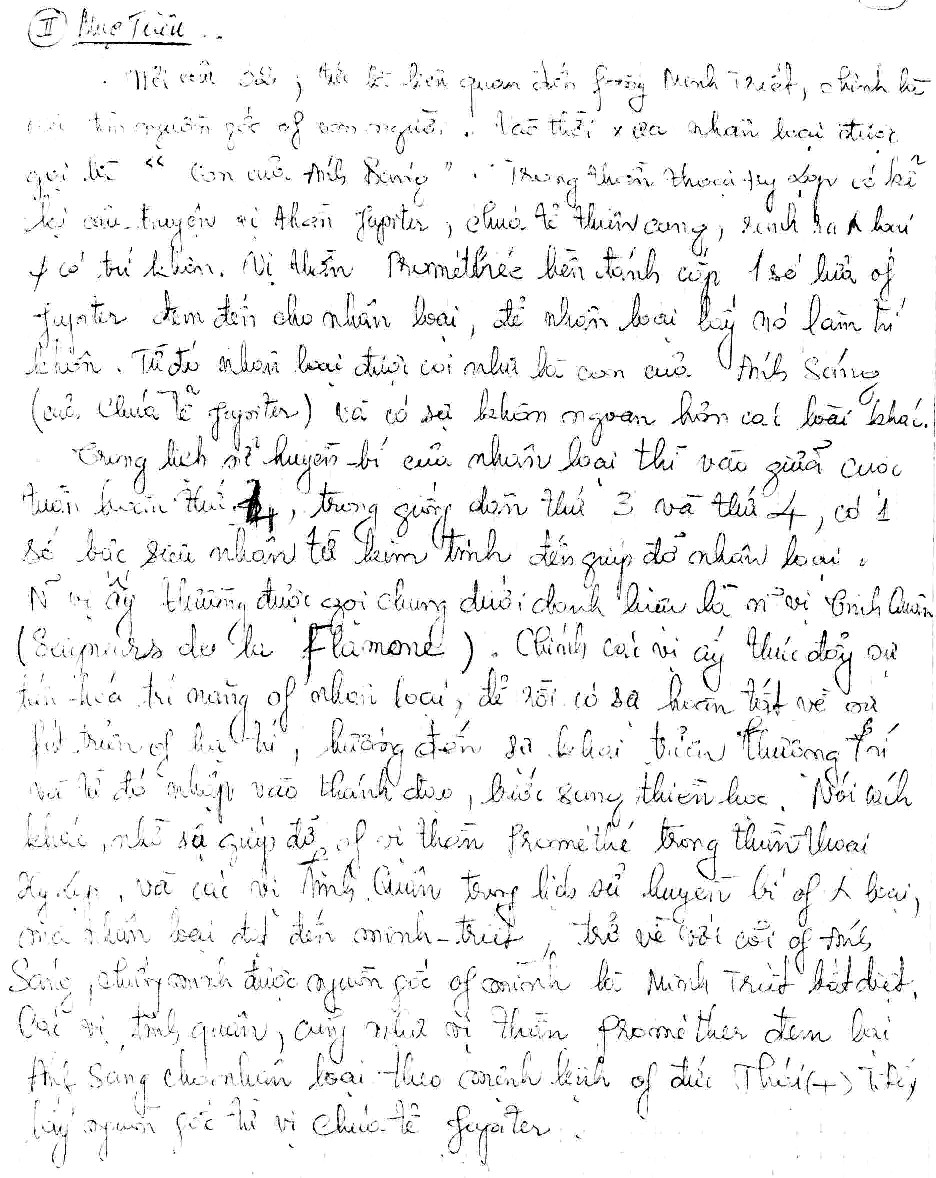 II Mục Tiêu ..
quan đến phòng Minh Triết, chính là
nguồn gốc of con người. Vào thời xưa nhân loại được
gọi là " con của Ánh Sáng ". Trong thần thoại Hy Lạp có kể
lại câu truyện vị thần Jupiter, chúa tể thiên cung, sinh ra loài
có trí khôn. Vị thần Prométhée bèn đánh cắp 1 số lửa of
Jupiter đem đến cho nhân loại, để nhân loại lấy nó làm trí
khôn. Từ đó nhân loại được coi như là con của Ánh Sáng
(của Chúa Tể Jupiter) và có sự khôn ngoan hơn các loài khác.
Trong lịch sử huyền-bí của nhân loại thì vào giữa cuộc
tuần hoàn thứ 4, trong giống dân thứ 3 và thứ 4, có 1
số bậc siêu nhân từ kim tinh đến giúp đỡ nhân loại.
N~ vị ấy thường được gọi chung dưới danh hiệu là n~ vị Tinh Quân
(Seigneurs de la Flamme). Chính các vị ấy thúc đẩy sự
tiến-hoá trí năng of nhân loại, để rồi có sự hoàn tất về sự
fát triển of hạ trí, hướng đến sự khai triển thượng trí
và từ đó nhập vào thánh đạo, bước sang thiền học. Nói cách
khác, nhờ sự giúp đỡ of vị thần Prométhé trong thần thoại
Hy Lạp, và các vị Tinh Quân trong lịch sử huyền bí of loại,
mà nhân loại đạt đến minh-triết, trở về với cõi of Ánh
Sáng, chứng minh được nguồn gốc of mình là Minh Triết bất diệt.
Các vị tinh quân, cũng như vị thần Prométher đem lại
Ánh Sáng cho nhân loại theo mệnh lệnh of đức Thái (+)
lấy nguồn gốc từ vị chúa tể Jupiter.